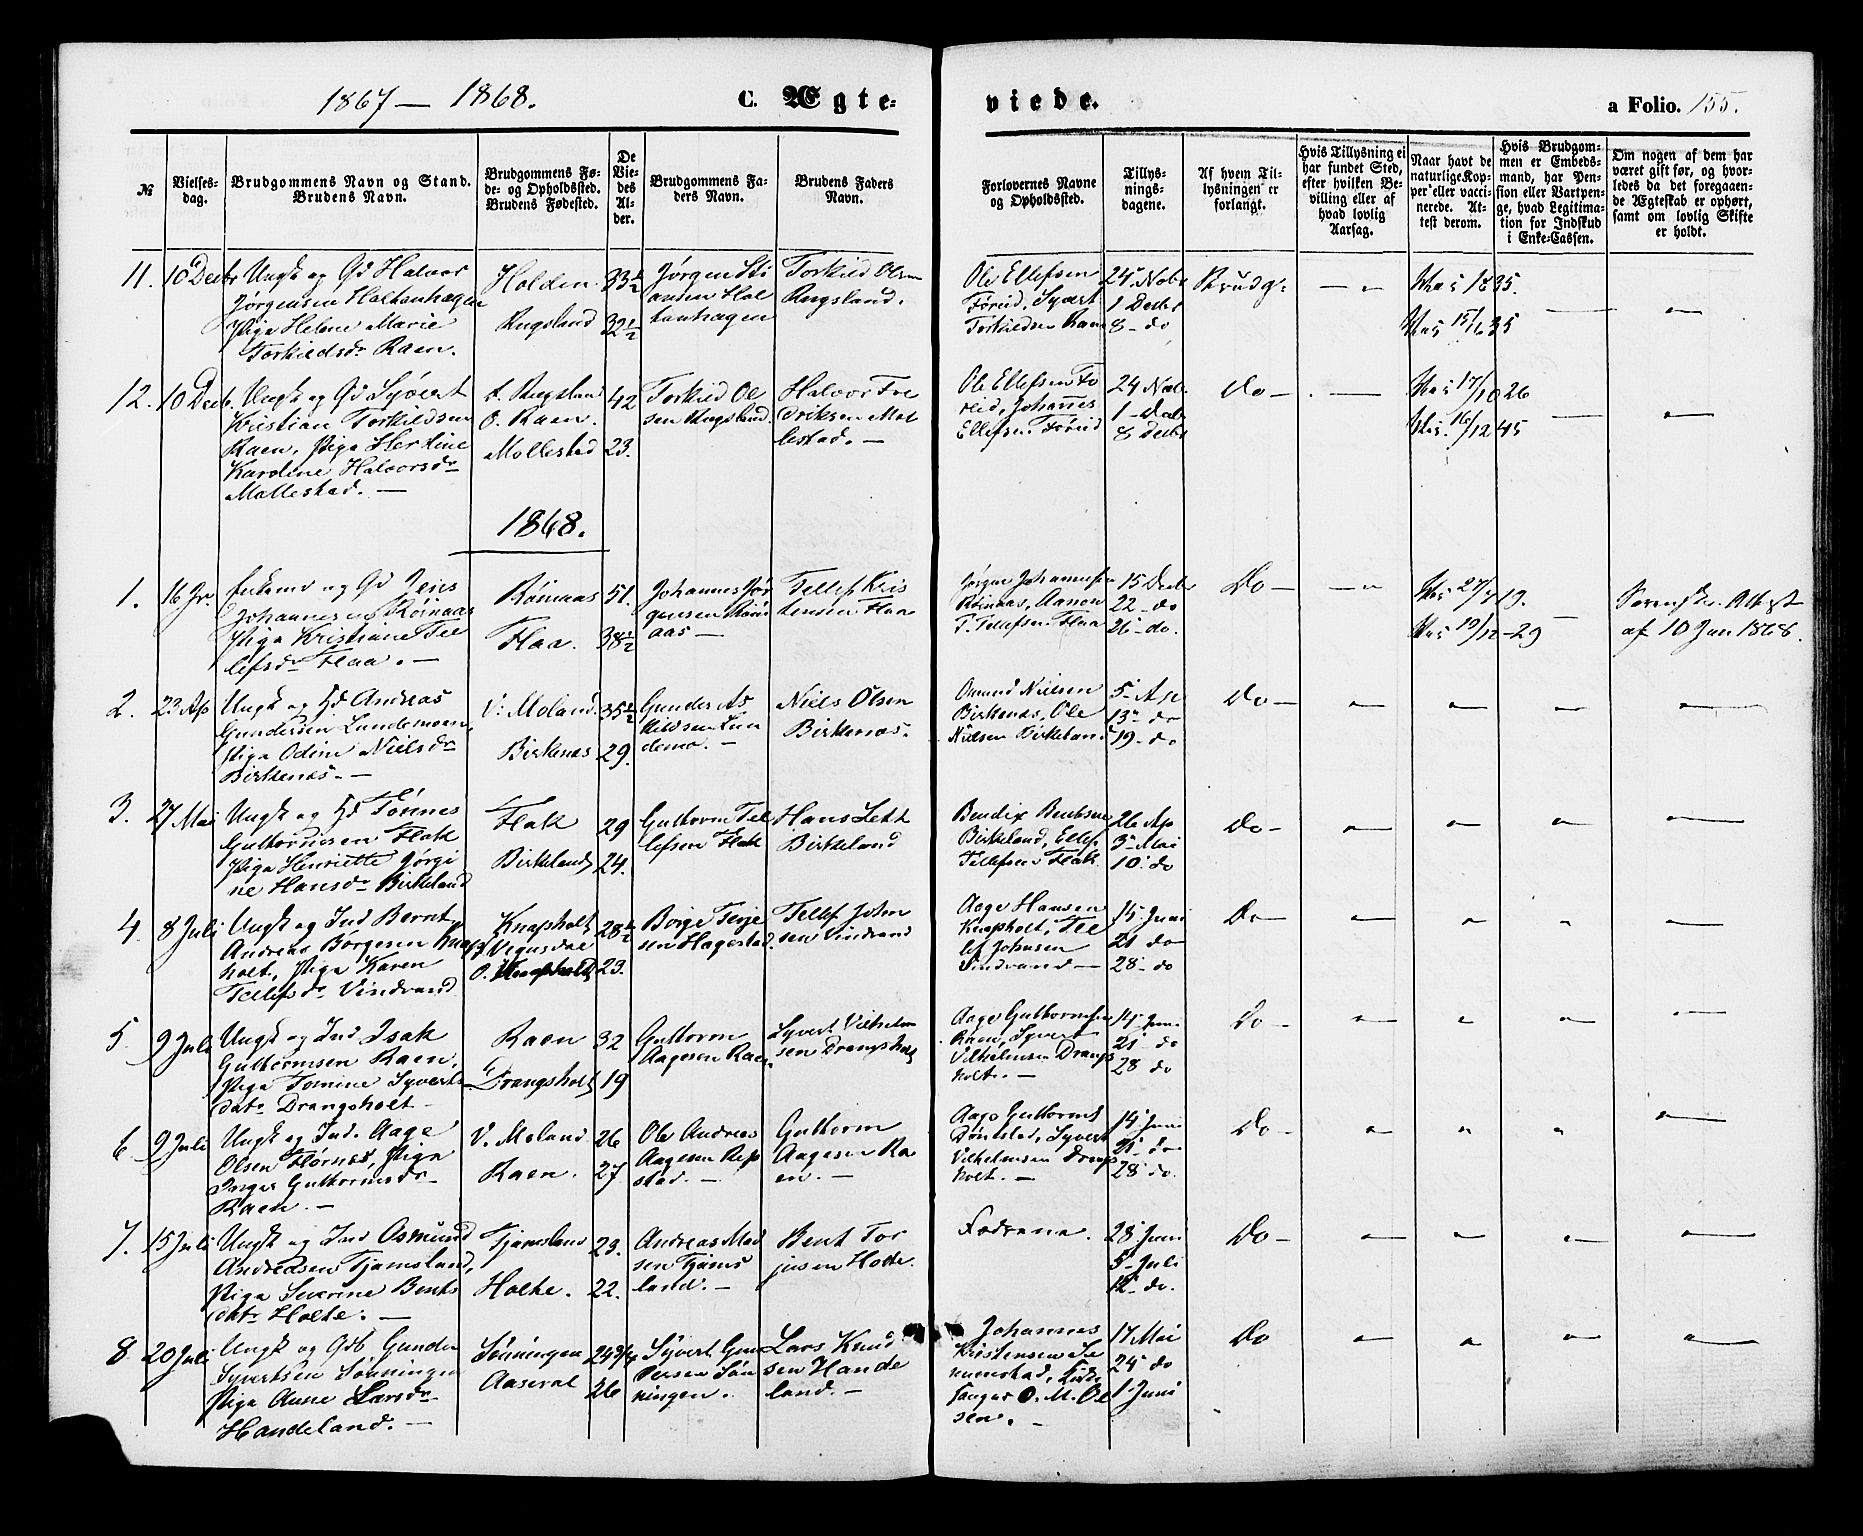 1867 — 1868.
C. Ægte=
viede.
a Folio. 155.
№
Vielses-
dag.
Brudgommens Navn og Stand.
Brudens Navn.
Brudgommens Fø-
de- og Opholdssted.
Brudens Fødested.
De
Vie-
des
Al-
der.
Brudgommens Fa-
ders Navn.
Brudens Faders
Navn.
Forlovernes Navne
og Opholdssted.
Tillys-
nings-
dagene.
Af hvem Til-
lysningen er
forlangt.
Hvis Tillysning ei
har fundet Sted,
efter hvilken Be-
villing eller af
hvad lovlig
Aarsag.
Naar havt de
naturlige Kop-
per eller vacci-
nerede. At-
test derom.
Hvis Brudgom-
men er Embeds-
mand, har Pen-
sion eller Vartpen-
ge, hvad Legitima-
tion for Indskud
i Enke-Cassen.
Om nogen af dem har
været gift før, og hvor-
ledes da det foregaaen-
de Ægteskab er ophørt,
samt om lovlig Skifte
er holdt.
11. 10 Decbr Ungk og Gd Halvor
Jørgensen Holtanhagen
Pige Helene Marie
Torkildsdr Raen.
Holden 33½
Rugsland 32½
Jørgen Sti
ansen Hol
tanhagen
Torkild Olsen
Rugsland.
Ole Ellefsen
Føreid, Syvert
Torkildsen Raen
24 Nobr
1 Decbr
8 - do
Brudg:
— "
1835.
15/6 35
—
12. 10 Decb. Ungk og Gd Syvert
Kristian Torkildsen
Raen, Pige Hertine
Karoline Halvorsdr
Mollestad. —
f. Rugsland
O. Raen. 42
Mollestad 23.
Torkild Ol
sen Rugsland.
Halvor Fre
driksen Mol
lestad. —
Ole Ellefsen Fø
reid, Johannes
Ellefsen Føreid
24 Nob.
1 - Decbr
8 Decbr
Do —
—
17/10 26
16/12 45
—
1868.
1. 16 Jr. Enkemd og Gd Jens
Johannesen Røinaas
Pige Kristiane Tel
lefsdr Flaa. —
Røinaas 51.
Flaa. 38½
Johannes Jør
gensen Røin
aas —
Tellef Kris
tensen Flaa
Jørgen Johannesen
Røinaas, Aanon
T. Tellefsen Flaa
15 Decbr
22 - do
26 - do.
Do —
— "
27/7 19.
19/12 - 29
—
Sorensk. Attest
af 10 Jan 1868.
2. 23 Ap Ungk og Hd Andreas
Gundersen Lundemoen,
Pige Odine Nielsdr
Birkenæs. —
V: Moland 35½
Birkenæs 29.
Gunder As
kildsen Lun
demo. —
Niels Olsen
Birkenæs.
Omund Nielsen
Birkenæs, Ole
Nielsen Birkeland
5 - Ap
13 - do
19 - do
Do —
—
3. 27 Mai Ungk og Hd Tønnes
Guttormsen Flak
Pige Henriette Jørgi
ne Hansdr Birkeland
Flak 29
Birkeland 24.
Guttorm Tel
lefsen Flak
Hans Lekk
Birkeland
Bendix Bentsen
Birkeland, Ellef
Tellefsen Flak
26 Ap
3 - Mai
10 - do
Do —
—
4. 8 Juli Ungk og Ind Bernt
Andreas Børgesen Knap
holt, Pige Karen
Tellefsdr Vindrand
Knapholt 28½
f. Vegusdal
O. Knapholt 23.
Børge Terje
sen Hagestad.
Tellef John
sen Vindrand
Aage Hansen
Knapholt, Tel
lef Johnsen
Vindrand —
15 Juni
21 do
28 - do
Do —
—
5. 9 Juli Ungk og Ind Isak
Guttormsen Raen,
Pige Tomine Syverts
datr Drangsholt —
Raen 32
Drangsholt 19
Guttorm
Aagesen Raen
Syvert Vilhelm
sen Drangsholt
Aage Guttormsen
Raen, Syvert
Vilhelmsen Drangs
holt. —
14 Juni
21 do
28 do
Do —
—
6. 9 Juli Ungk og Ind. Aage
Olsen Hørnes, Pige
Inger Guttormsdr
Raen. —
V. Moland 26
Raen. 27
Ole Andreas
Aagesen Rep
stad. —
Guttorm
Aagesen Ra
en. —
Aage Guttorms
Syvert
Vilhelmsen Drangs
holt. —
14 Juni
21 - do
28 do.
Do —
—
7. 15 Juli Ungk og Ind Osmund
Andreasen Tjamsland,
Pige Severine Bents
datr Holte. —
Tjamsland 23.
Holte. 22.
Andreas Mad
sen Tjams
land. —
Bent Tor
jusen Holte.
Fædrene.
28 Juni
5 - Juli
12 do.
Do —
—
8. 20 Juli Ungk og Gdb Gunder
Syvertsen Sønningen
Pige Anne Larsdr
Handeland. —
Sønningen 24 3/4
Aaseral 26
Syvert Gun
dersen Søn
ningen.
Lars Knud
sen Hande
land. —
Johannes
Kristensen Se
numstad, Kirke
sanger O. M. Ol
sen. —
17 Mai
24 do
1 Juni
Do
—